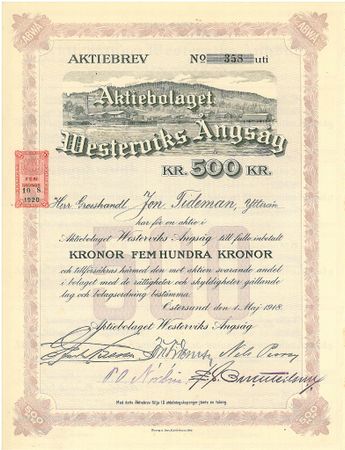 ABWÅ
ABWÅ
AKTIEBREV No 358 uti
Aktiebolaget
Westerviks Ångsåg
KR. 500 KR.
FEM
KRONOR
10 8
1920
Herr Grosshandl. Jon Tideman, Ytterån
har för en aktie i
Aktiebolaget Westerviks Ångsåg till fullo inbetalt
KRONOR FEM HUNDRA KRONOR
och tillförsäkras härmed den mot aktien svarande andel
i bolaget med de rättigheter och skyldigheter gällande
lag och bolagsordning bestämma.
Östersund den 1 Maj 1918.
Aktiebolaget Westerviks Ångsåg
Nils
P.O. Norlin
Med detta Aktiebrev följa 12 utdelningskuponger jämte en talong.
500
500